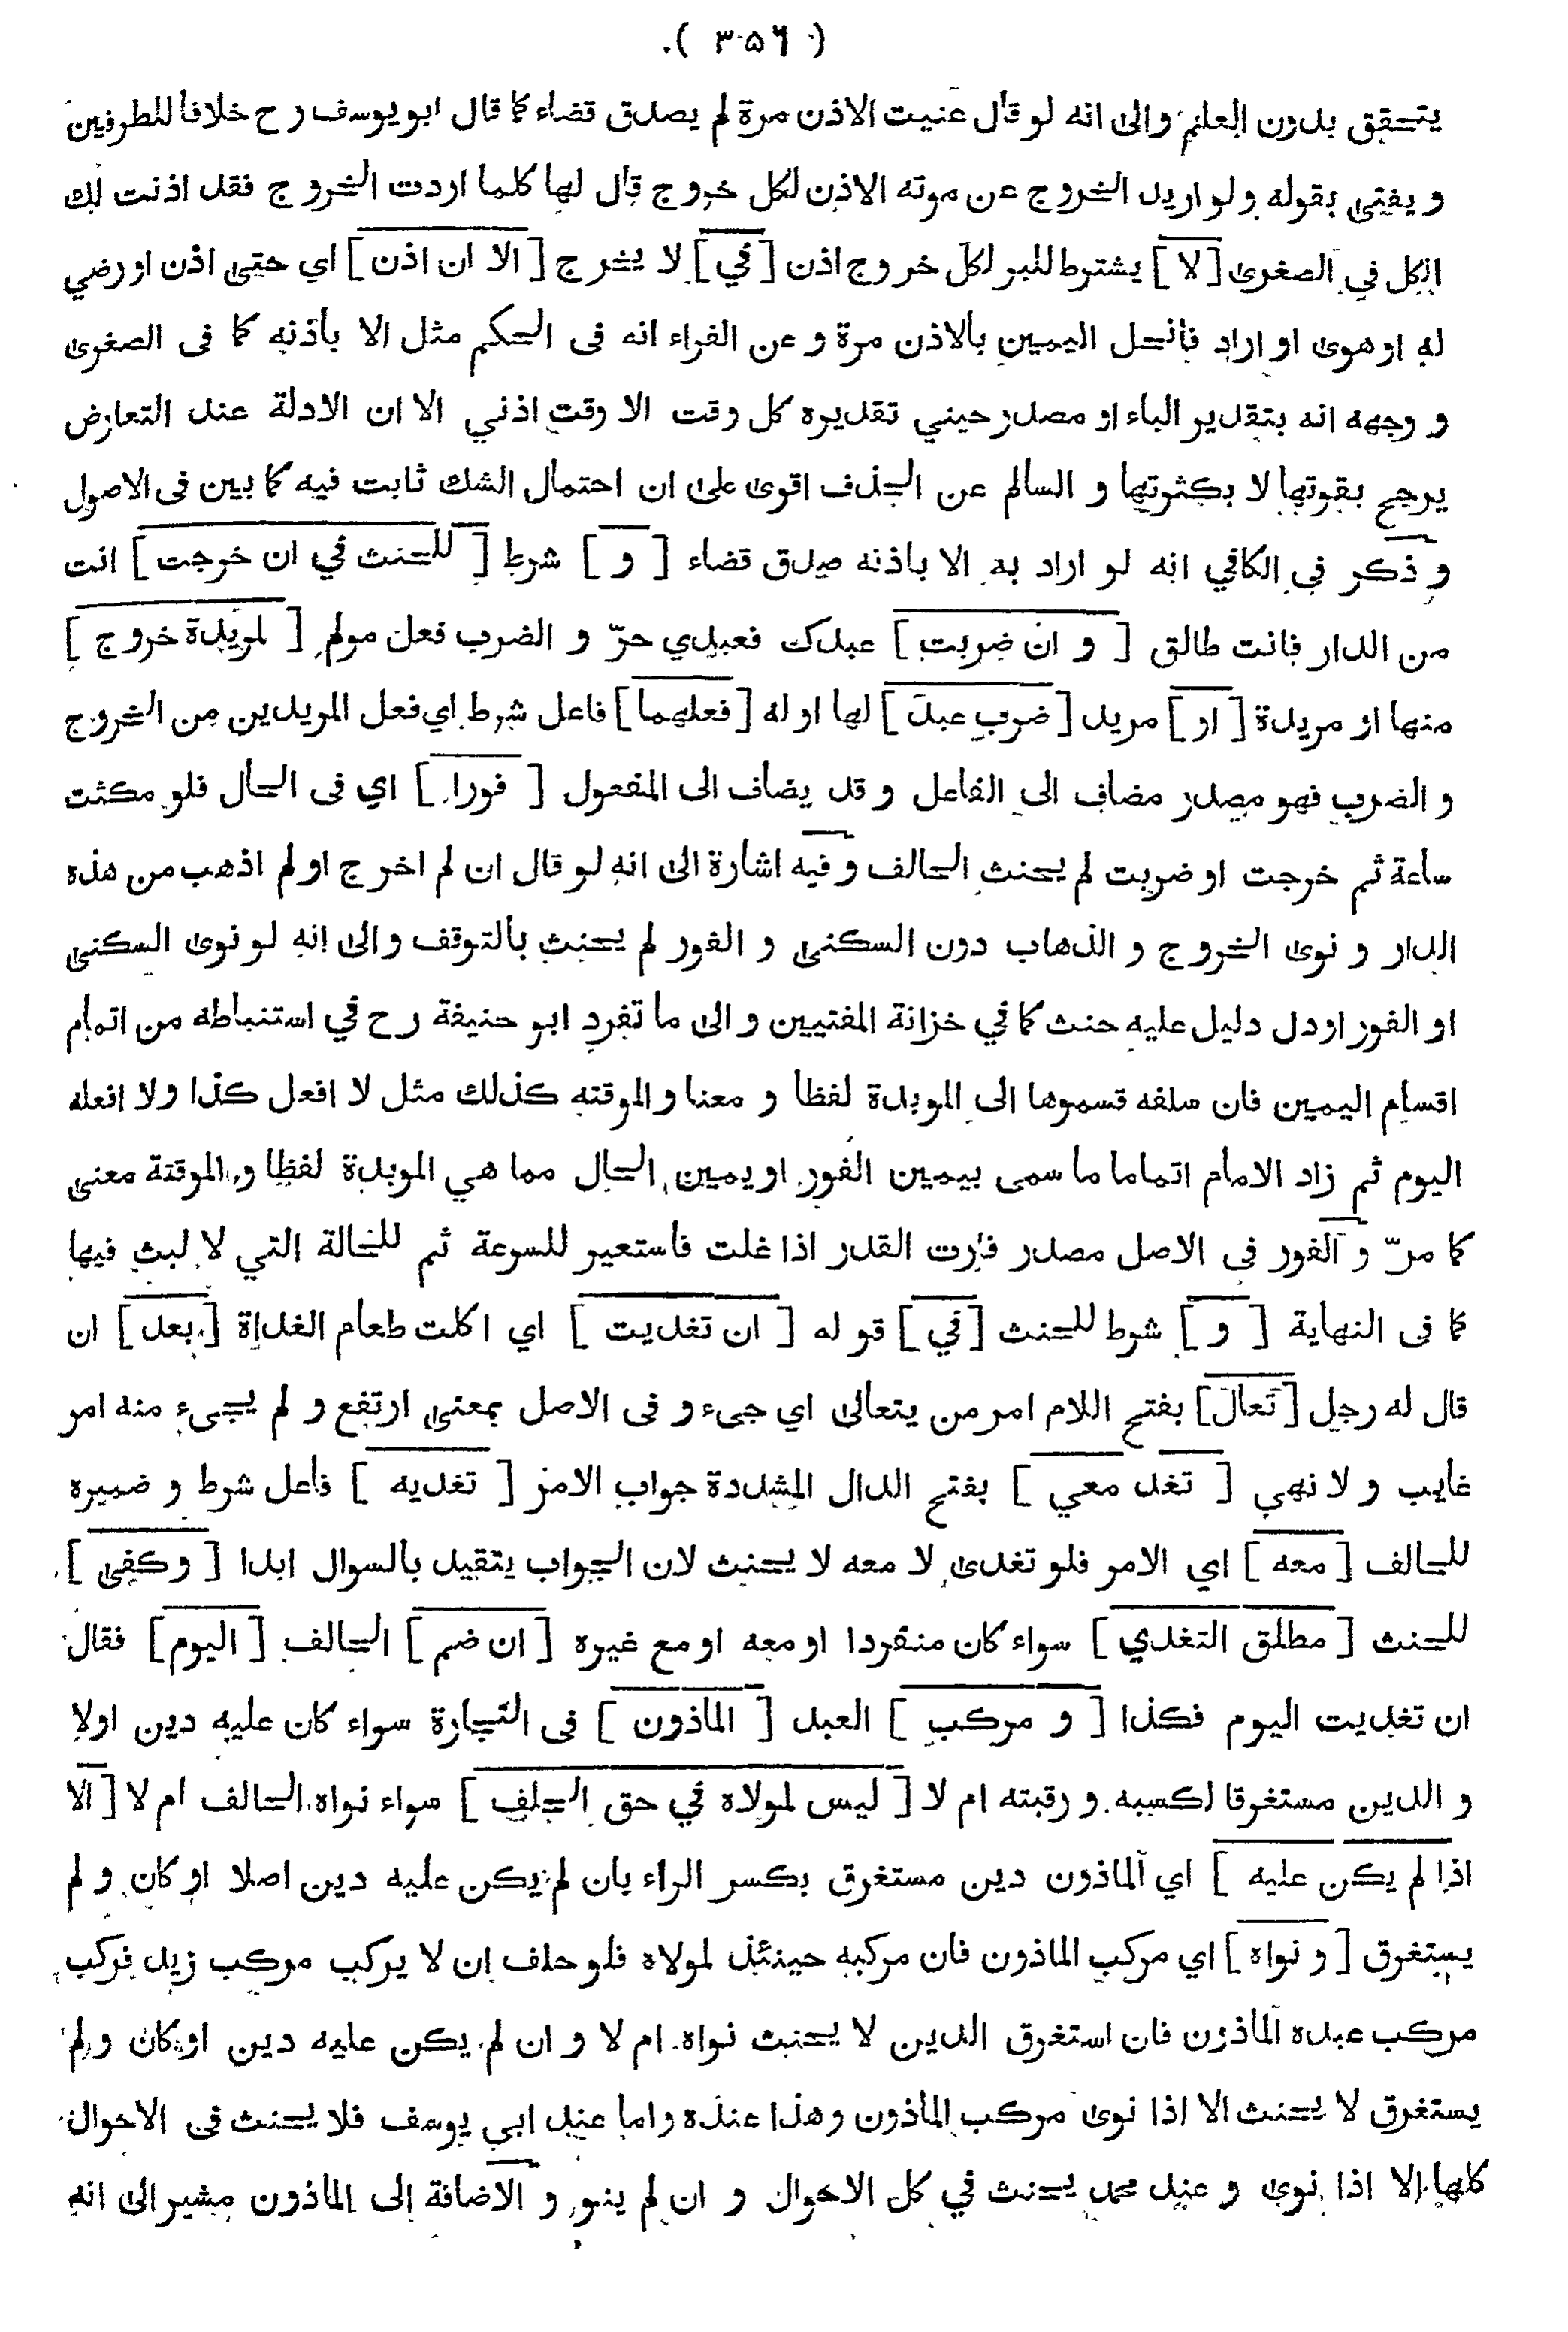 ( ٣٥٦ )
يتحقق بدون العلم والى انه لو قال عنيت الاذن مرة لم يصدق قضاء كما قال ابو يوسف رح خلافا للطرفين
و يفتى بقوله و لو اريد الخروج عن موته الاذن لكل خروج قال لها كلما اردت الخروج فقد اذنت لك
الكل في الصغرى [ لا ] يشترط للبر لكل خروج اذن [ في ] لا يخرج [ الا ان اذن ] اي حتى اذن او رضي
له او هوى او اراد فانحل اليمين بالاذن مرة و عن الفراء انه فى الحكم مثل الا باذنه كما فى الصغرى
و وجهه انه بتقدير الباء او مصدر حيني تقديره كل وقت الا وقت اذني الا ان الادلة عند التعارض
يرجح بقوتها لا بكثرتها و السالم عن الحذف اقوى على ان احتمال الشك ثابت فيه كما بين فى الاصول
و ذكر فى الكافي انه لو اراد به الا باذنه صدق قضاء [ و ] شرط [ للحنث في ان خرجت ] انت
من الدار فانت طالق [ و ان ضربت ] عبدك فعبدي حرّ و الضرب فعل مولم [ لمريدة خروج ]
منها او مريدة [ او ] مريد [ ضرب عبد ] لها او له [ فعلهما ] فاعل شرط اي فعل المريدين من الخروج
و الضرب فهو مصدر مضاف الى الفاعل و قد يضاف الى المفعول [ فورا ] اي فى الحال فلو مكثت
ساعة ثم خرجت او ضربت لم يحنث الحالف و فيه اشارة الى انه لو قال ان لم اخرج او لم اذهب من هذه
الدار و نوى الخروج و الذهاب دون السكنى و الفور لم يحنث بالتوقف والى انه لو نوى السكنى
او الفور او دل دليل عليه حنث كما في خزانة المفتيين و الى ما تفرد ابو حنيفة رح في استنباطه من اتمام
اقسام اليمين فان سلفه قسموها الى الموبدة لفظا و معنا والموقته كذلك مثل لا افعل كذا و لا افعله
اليوم ثم زاد الامام اتماما ما سمى بيمين الفور او يمين الحال مما هي الموبدة لفظا و الموقتة معنى
كما مرّ و الفور فى الاصل مصدر فارت القدر اذا غلت فاستعير للسرعة ثم للحالة التي لا لبث فيها
كما فى النهاية [ و ] شرط للحنث [ في ] قوله [ ان تغديت ] اي اكلت طعام الغداة [ بعد ] ان
قال له رجل [ تَعالَ ] بفتح اللام امر من يتعالى اي جىء و فى الاصل بمعنى ارتفع و لم يجىء منه امر
غايب و لا نهي [ تغد معي ] بفتح الدال المشددة جواب الامر [ تغديه ] فاعل شرط و ضميره
للحالف [ معه ] اي الامر فلو تغدى لا معه لا يحنث لان الجواب يتقيد بالسوال ابدا [ و كفى ]
للحنث [ مطلق التغدي ] سواء كان منفردا او معه او مع غيره [ ان ضم ] الحالف [ اليوم ] فقال
ان تغديت اليوم فكذا [ و مركب ] العبد [ الماذون ] فى التجارة سواء كان عليه دين اولا
و الدين مستغرقا لكسبه و رقبته ام لا [ ليس لمولاه في حق الحلف ] سواء نواه الحالف ام لا [ الا
اذا لم يكن عليه ] اي الماذون دين مستغرق بكسر الراء بان لم يكن عليه دين اصلا او كان و لم
يستغرق [ و نواه ] اي مركب الماذون فان مركبه حينئذ لمولاه فلو حلف ان لا يركب مركب زيد فركب
مركب عبده الماذون فان استغرق الدين لا يحنث نواه ام لا و ان لم يكن عليه دين او كان و لم
يستغرق لا يحنث الا اذا نوى مركب الماذون و هذا عنده و اما عند ابي يوسف فلا يحنث فى الاحوال
كلها الا اذا نوى و عند محمد يحنث في كل الاحوال و ان لم ينو و الاضافة الى الماذون مشير الى انه